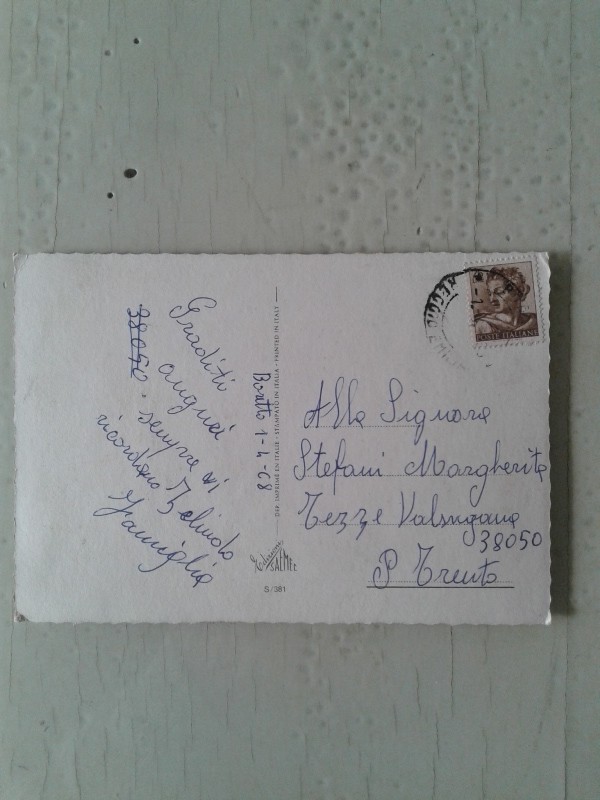 Graditi
auguri
38050. sempre vi
ricordano
Famiglia
1-4-68
DEP. IMPRIMÉ EN ITALIE - STAMPATO IN ITALIA - PRINTED IN ITALY
SALMEE
S/381
POSTE ITALIANE
Alla Signora
Stefani Margherita
Tezze Valsugana
38050
P Trento